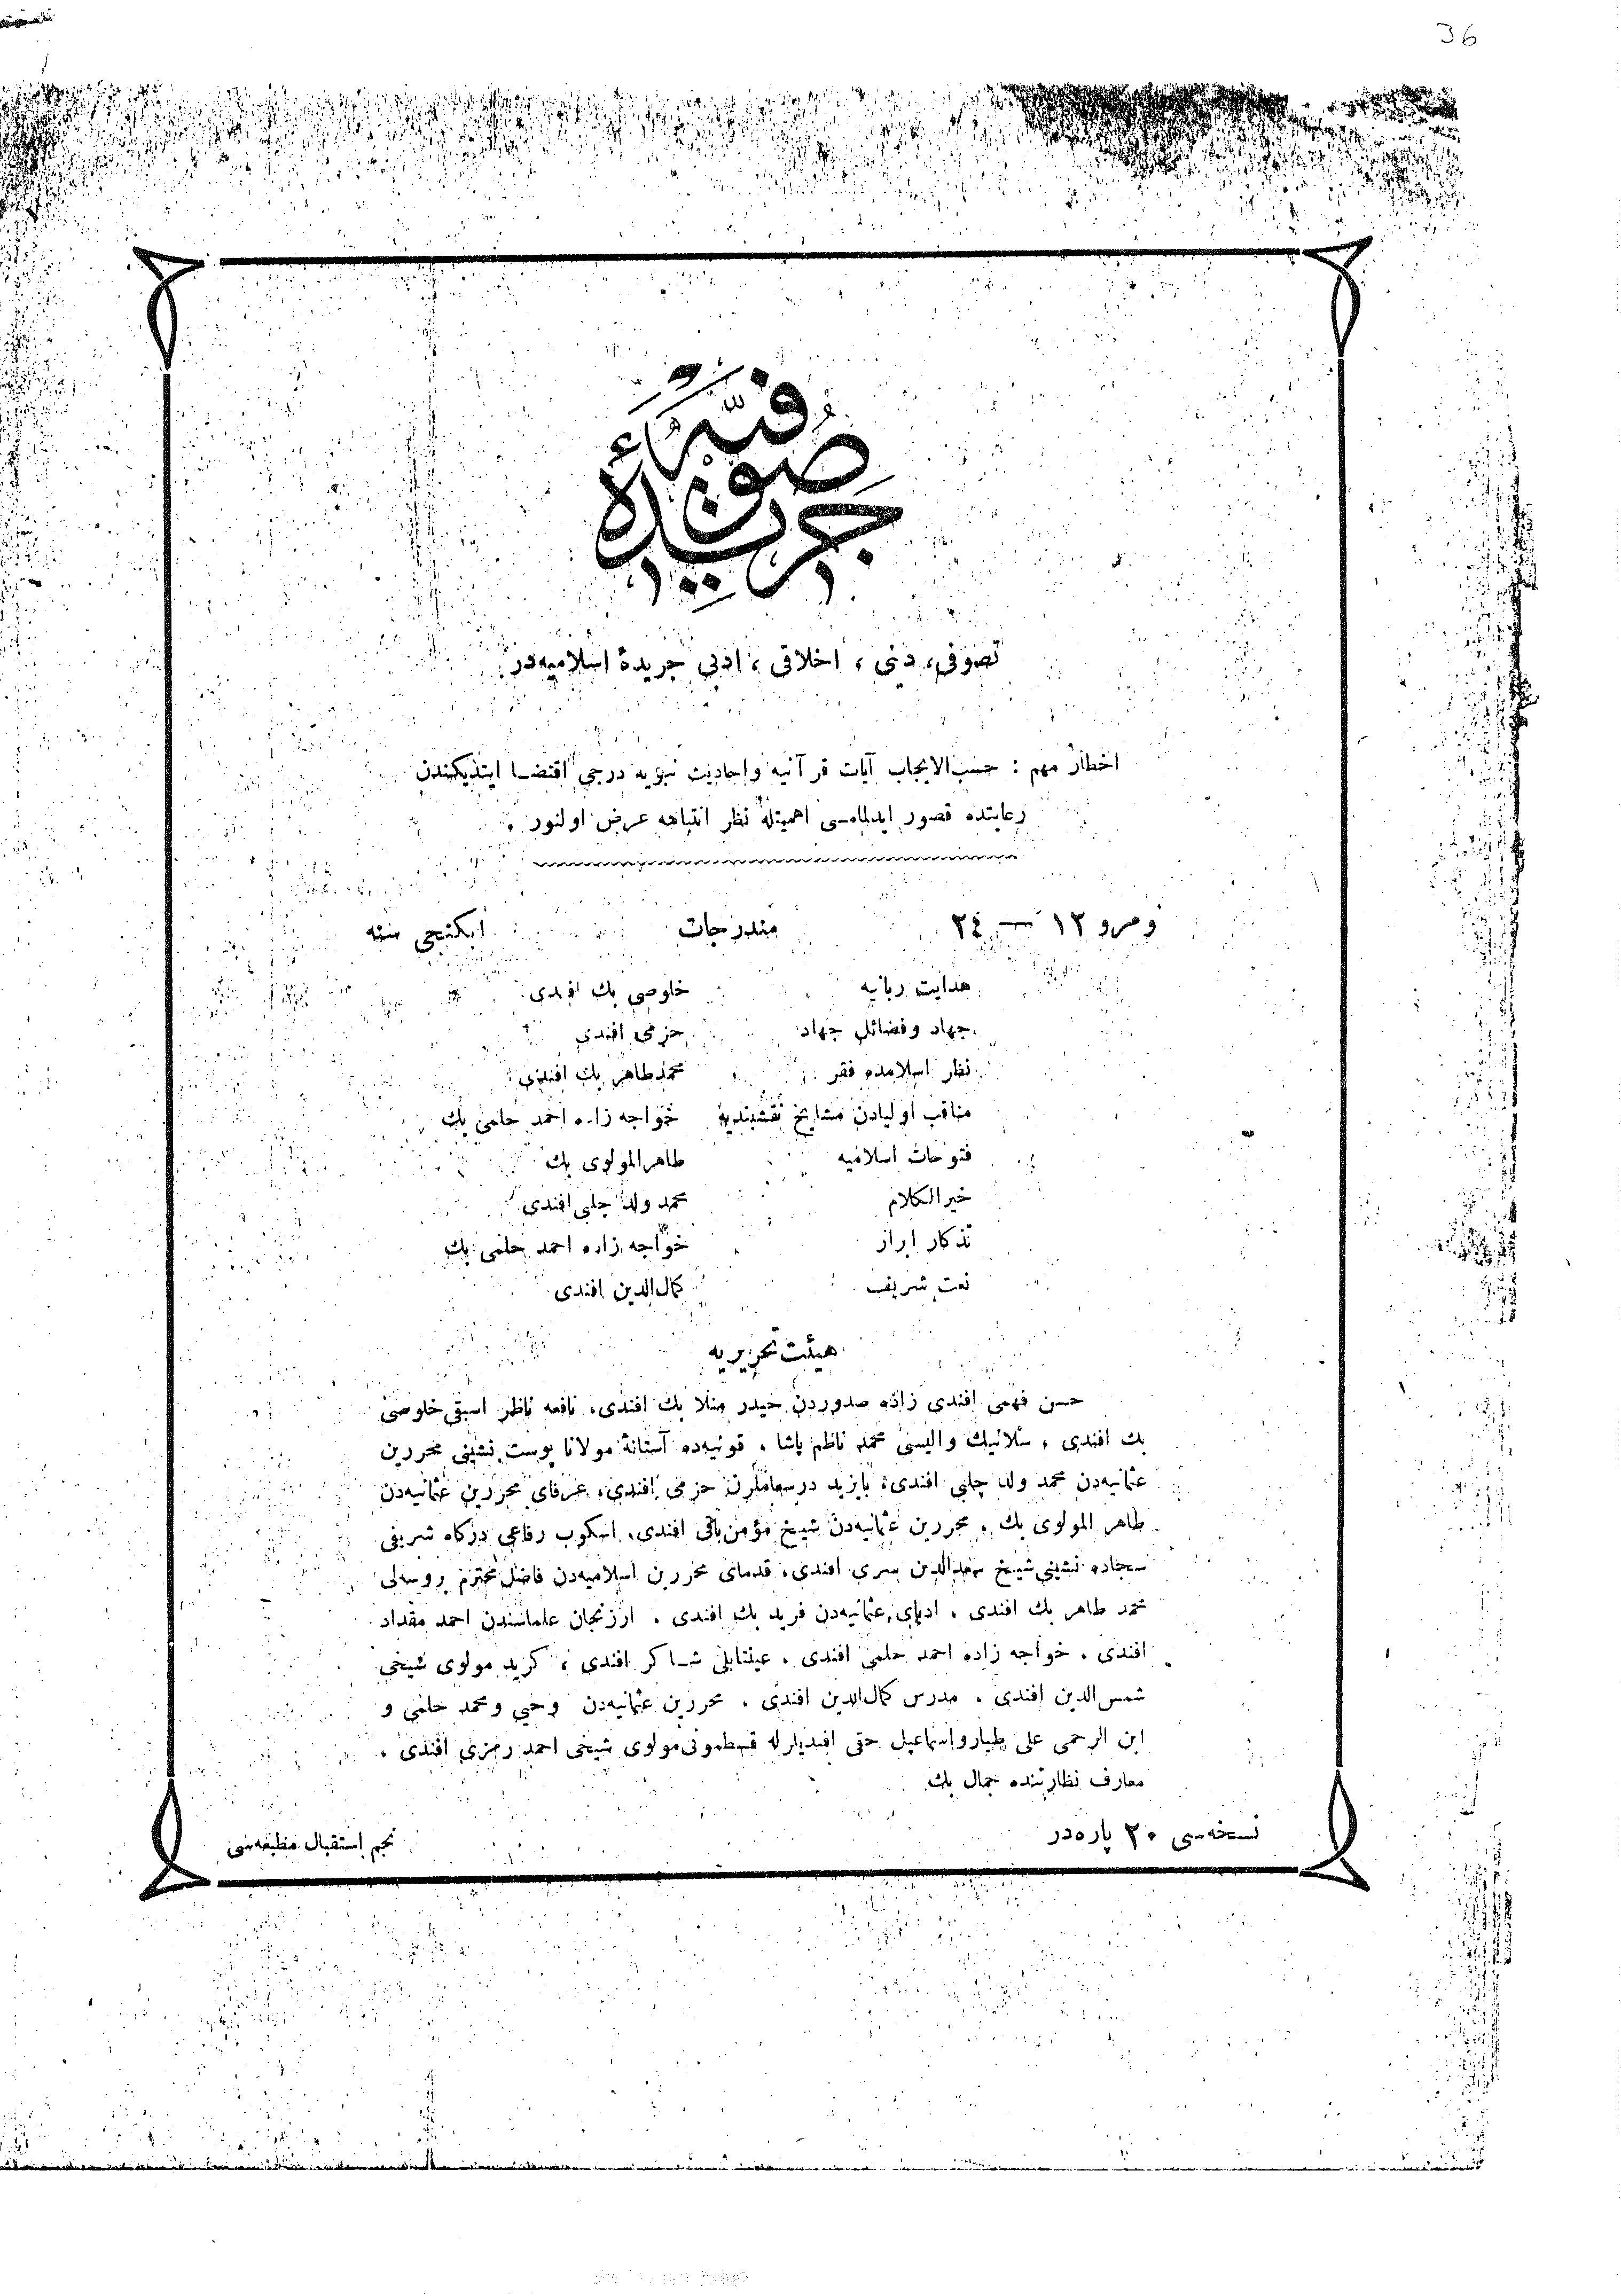 36
جريدۀ صوفيه
تصوفی، دينی ، اخلاقی ، ادبی جريدۀ اسلاميه‌در
اخطار مهم : حسب‌الايجاب آيات قرآنيه واحاديث نبويه درجی اقتضا ايتديكندن
رعايتده قصور ايدلمامسی اهميتله نظر انتباهه عرض اولنور .
نومرو ١٢ — ٢٤ مندرجات ايكنجی سنه
هدايت ربانيه خلوصی بك افندی
جهاد وفضائل جهاد حزمی افندی
نظر اسلامده فقر محمد طاهر بك افندی
مناقب اوليادن مشايخ نقشبنديه خواجه زاده احمد حلمی بك
فتوحات اسلاميه طاهرالمولوی بك
خيرالكلام محمد ولد چلبی افندی
تذكار ابرار خواجه زاده احمد حلمی بك
نعت شريف كمال‌الدين افندی
هيئت تحريريه
حسن فهمی افندی زاده صدوردن حيدر منلا بك افندی، نافعه ناظر اسبقی خلوصی
بك افندی ، سلانيك واليسی محمد ناظم پاشا ، قونيه‌ده آستانۀ مولانا پوست نشينی محررين
عثمانيه‌دن محمد ولد چلبی افندی، بايزيد درسعاملرن حزمی افندی، عرفای محررين عثمانيه‌دن
طاهر المولوی بك ، محررين عثمانيه‌دن شيخ مؤمن باقی افندی، اسكوب رفاعی دركاه شريفی
سجاده نشينی شيخ سعدالدين سری افندی، قدمای محررين اسلاميه‌دن فاضل محترم بروسه‌لی
محمد طاهر بك افندی ، ادبای عثمانيه‌دن فريد بك افندی . ارزنجان علماسندن احمد مقداد
افندی . خواجه زاده احمد حلمی افندی . عينتابلی شاكر افندی ، كريد مولوی شيخی
شمس‌الدين افندی . مدرس كمال‌الدين افندی . محررين عثمانيه‌دن وحيی ومحمد حلمی و
ابن الرحمی علی طيار واسماعيل حقی افنديلرله قسطمونی مولوی شيخی احمد رمزی افندی .
معارف نظارتنده جمال بك
نسخه‌سی ٢٠ پاره‌در
نجم استقبال مطبعه‌سی